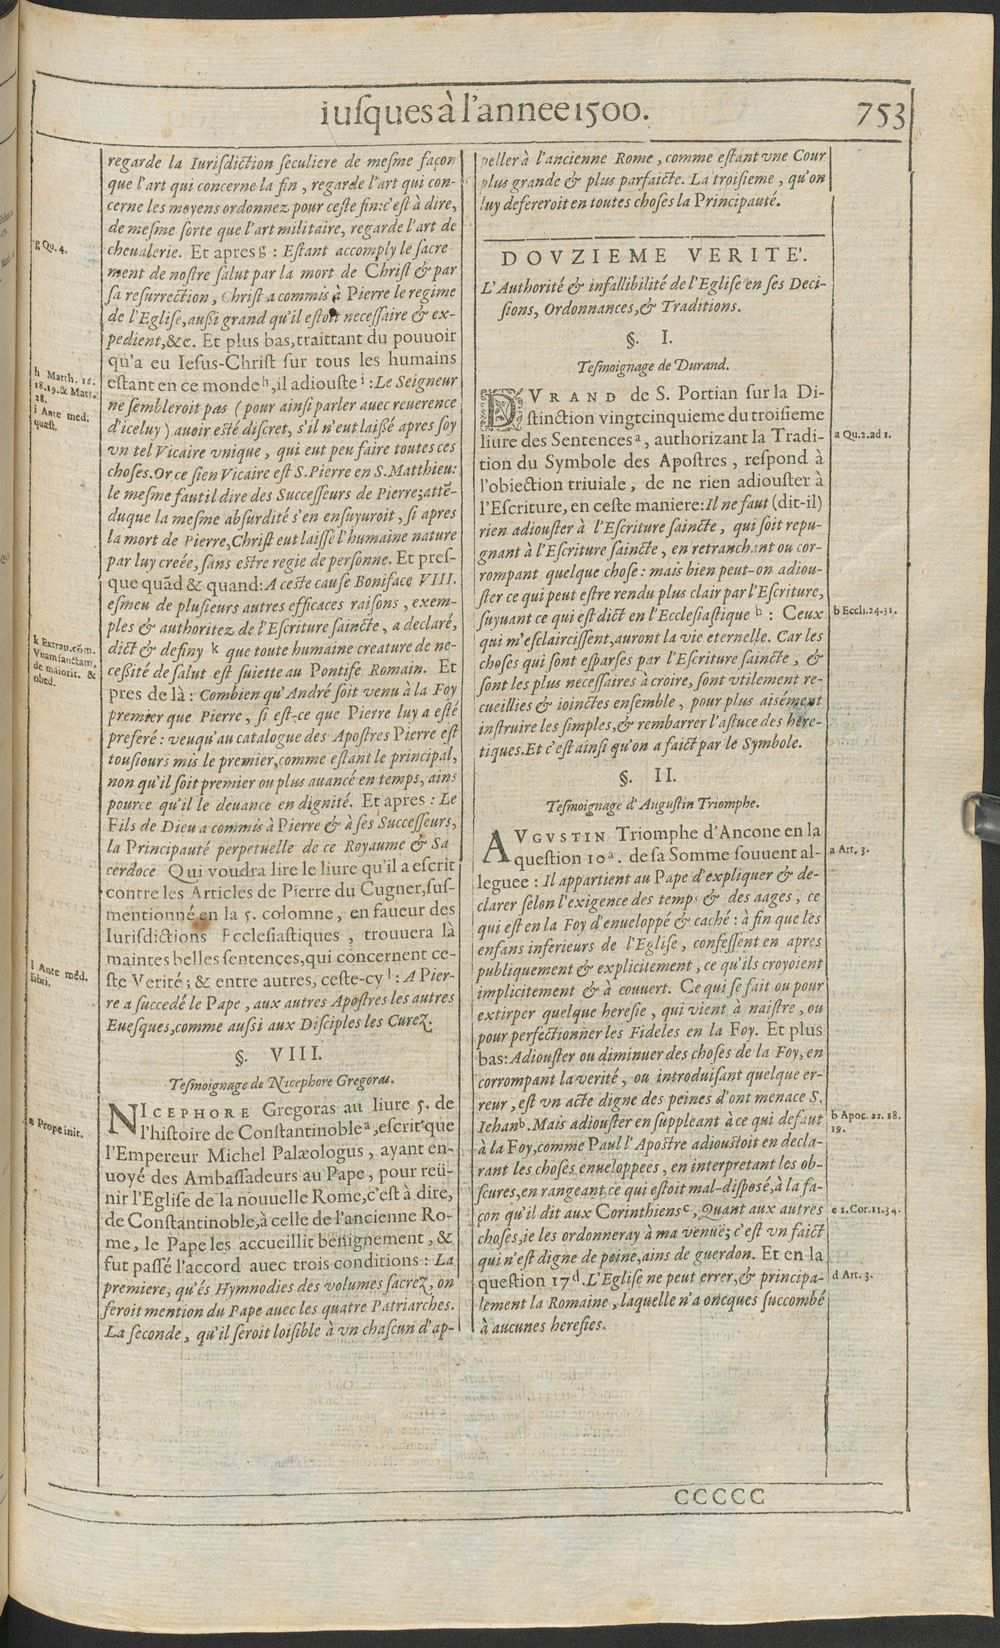 iusques à l'annee 1500.
753
regarde la Iurisdiction seculiere de mesme façon
que l'art qui concerne la fin, regarde l'art qui con-
cerne les moyens ordonnez pour ceste fin: c'est à dire,
de mesme sorte que l'art militaire, regarde l'art de
cheualerie. Et apres g : Estant accomply le sacre
ment de nostre salut par la mort de Christ & par
sa resurrection, Christ a commis à Pierre le regime
de l'Eglise, aussi grand qu'il estoit necessaire & ex-
pedient, &c. Et plus bas, traittant du pouuoir
qu'a eu Iesus-Christ sur tous les humains
estant en ce monde h, il adiouste i : Le Seigneur
ne sembleroit pas (pour ainsi parler auec reuerence
d'iceluy) auoir esté discret, s'il n'eut laißé apres soy
vn tel Vicaire vnique, qui eut peu faire toutes ces
choses. Or ce sien Vicaire est S. Pierre en S. Matthieu:
le mesme fautil dire des Successeurs de Pierre; attẽ-
duque la mesme absurdité s'en ensuyuroit, si apres
la mort de Pierre, Christ eut laissé l'humaine nature
par luy creée, sans estre regie de personne. Et pres-
que quãd & quand: A ceste cause Boniface VIII.
esmeu de plusieurs autres efficaces raisons, exem-
ples & authoritez de l'Escriture saincte, a declaré,
dict & definy k que toute humaine creature de ne-
cessité de salut est suiette au Pontife Romain. Et
pres de là : Combien qu'André soit venu à la Foy
premier que Pierre, si est-ce que Pierre luy a esté
preferé : veuqu'au catalogue des Apostres Pierre est
tousiours mis le premier, comme estant le principal,
non qu'il soit premier ou plus auancé en temps, ains
pource qu'il le deuance en dignité. Et apres : Le
Fils de Dieu a commis à Pierre & à ses Successeurs,
la Principauté perpetuelle de ce Royaume & Sa
cerdoce Qui voudra lire le liure qu'il a escrit
contre les Articles de Pierre du Cugner, sus-
mentionné en la 5. colomne, en faueur des
Iurisdictions Ecclesiastiques, trouuera là
maintes belles sentences, qui concernent ce-
ste Verité; & entre autres, ceste-cy l : A Pier-
re a succedé le Pape, aux autres Apostres les autres
Euesques, comme aussi aux Disciples les Curez.
§. VIII.
Tesmoignage de Nicephore Gregoras.
NICEPHORE Gregoras au liure 5. de
l'histoire de Constantinople a, escrit que
l'Empereur Michel Palæologus, ayant en-
uoyé des Ambassadeurs au Pape, pour reü-
nir l'Eglise de la nouuelle Rome, c'est à dire,
de Constantinoble, à celle de l'ancienne Ro-
me, le Pape les accueillit benignement, &
fut passé l'accord auec trois conditions : La
premiere, qu'és Hymnodies des volumes sacrez, on
feroit mention du Pape auec les quatre Patriarches.
La seconde, qu'il seroit loisible à vn chascun d'ap-
g Qu. 4.
h Matth. 16.
18.19. & Matt.
28.
i Ante med.
quæst.
k Extrau. cõm.
Vnam sanctam,
de maiorit. &
obed.
l Ante méd.
libri.
a Prope init.
peller à l'ancienne Rome, comme estant vne Cour
plus grande & plus parfaicte. La troisieme, qu'on
luy defereroit en toutes choses la Principauté.
DOVZIEME VERITE'.
L'Authorité & infallibilité de l'Eglise en ses Deci-
sions, Ordonnances, & Traditions.
§. I.
Tesmoignage de Durand.
DVRAND de S. Portian sur la Di-
stinction vingtcinquieme du troisieme
liure des Sentences a, authorizant la Tradi-
tion du Symbole des Apostres, respond à
l'obiection triuiale, de ne rien adiouster à
l'Escriture, en ceste maniere: Il ne faut (dit-il)
rien adiouster à l'Escriture saincte, qui soit repu-
gnant à l'Escriture saincte, en retranchant ou cor-
rompant quelque chose : mais bien peut-on adiou-
ster ce qui peut estre rendu plus clair par l'Escriture,
suyuant ce qui est dict en l'Ecclesiastique b : Ceux
qui m'esclaircissent, auront la vie eternelle. Car les
choses qui sont esparses par l'Escriture saincte, &
sont les plus necessaires à croire, sont vtilement re-
cueillies & ioinctes ensemble, pour plus aisément
instruire les simples, & rembarrer l'astuce des here-
tiques. Et c'est ainsi qu'on a faict par le Symbole.
§. II.
Tesmoignage d'Augustin Triomphe.
AVGVSTIN Triomphe d'Ancone en la
question 10 a. de sa Somme souuent al-
leguee : Il appartient au Pape d'expliquer & de-
clarer selon l'exigence des temps & des aages, ce
qui est en la Foy d'enueloppé & caché : à fin que les
enfans inferieurs de l'Eglise, confessent en apres
publiquement & explicitement, ce qu'ils croyoient
implicitement & à couuert. Ce qui se fait ou pour
extirper quelque heresie, qui vient à naistre, ou
pour perfectionner les Fideles en la Foy. Et plus
bas: Adiouster ou diminuer des choses de la Foy, en
corrompant la verité, ou introduisant quelque er-
reur, est vn acte digne des peines d'ont menace S.
Iehan b. Mais adiouster en suppleant à ce qui defaut
à la Foy, comme Paul l'Apostre adioustoit en decla-
rant les choses enueloppees, en interpretant les ob-
scures, en rangeant ce qui estoit mal-disposé, à la fa-
çon qu'il dit aux Corinthiens c, Quant aux autres
choses, ie les ordonneray à ma venuë; c'est vn faict
qui n'est digne de peine, ains de guerdon. Et en la
question 17 d. L'Eglise ne peut errer, & principa-
lement la Romaine, laquelle n'a oncques succombé
à aucunes heresies.
a Qu. 2. ad 1.
b Eccli. 24.31.
a Art. 3.
b Apoc. 22. 18.
19.
c 1. Cor. 11.34.
d Art. 3.
CCCCC